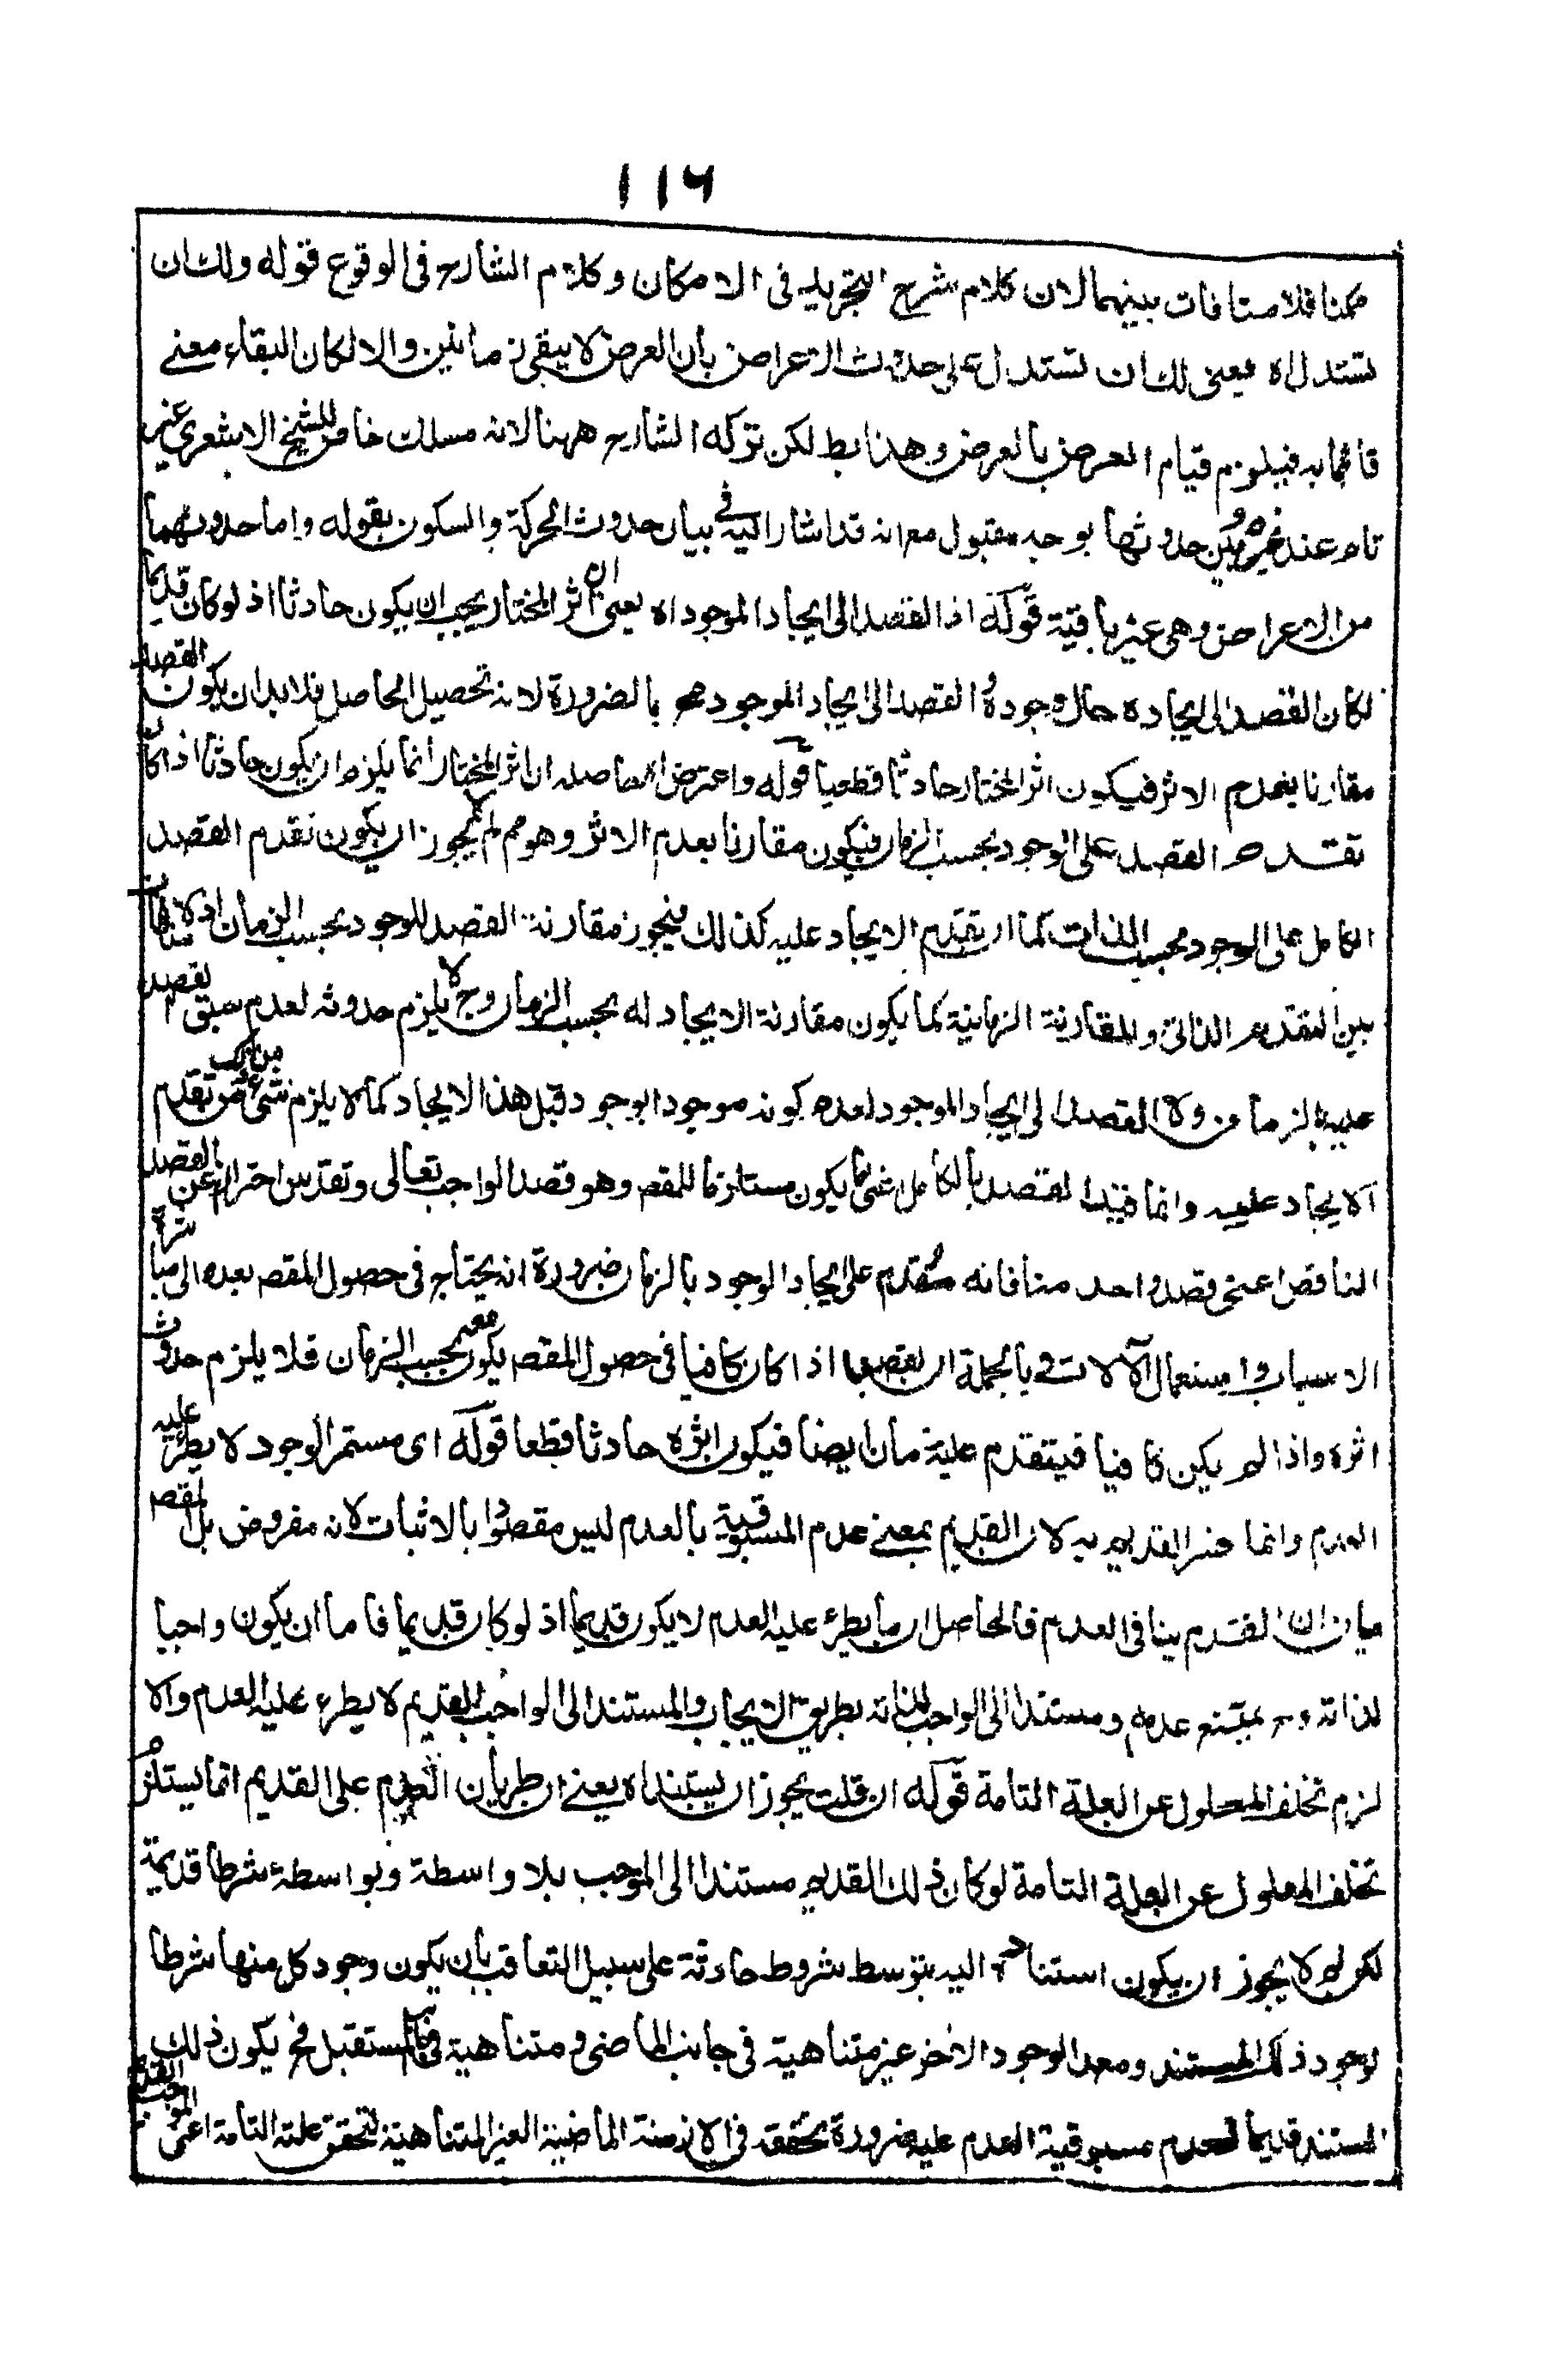 ١١٦
ممكنا فلا منافات بينهما لان كلام شرح التجريد في الامكان وكلام الشارح في الوقوع قوله ولك ان
تستدل اه يعني لك ان تستدل على حدوث الاعراض بأن العرض لا يبقى زمانين والا لكان البقاء معنى
قائما به فيلزم قيام العرض بالعرض وهذا بط لكن تركه الشارح ههنا لانه مسلك خاص للشيخ الاشعري غير
تام عند غيره حدوثها بوجه مقبول مع انه قد اشار اليه في بيان حدوث الحركة والسكون بقوله واما حدوثهما
من الاعراض وهي غير باقية قوله اذ القصد الى ايجاد الموجود اه يعني ان اثر المختار يجب ان يكون حادثا اذ لو كان قديما
لكان القصد الى ايجاده حال وجوده و القصد الى ايجاد الموجود مح بالضرورة لانه تحصيل الحاصل فلا بد ان يكون القصد
مقارنا بعدم الاثر فيكون اثر المختار حادثا قطعيا قوله واعترض اه حاصله ان اثر المختار انما يلزم ان يكون حادثا اذا كان
تقدم القصد على الوجود بحسب الزمان فيكون مقارنا بعدم الاثر وهو مم لم لا يجوز ان يكون تقدم القصد
الكامل على الوجود بحسب الذات كما ان تقدم الايجاد عليه كذلك فيجوز مقارنة القصد للوجود بحسب الزمان اذ لا منافات
بين التقدم الذاتي والمقارنة الزمانية كما يكون مقارنة الايجاد له بحسب الزمان وح لا يلزم حدوثه لعدم سبق القصد
عليه بالزمان ولا القصد الى ايجاد الموجود لعدم كونه موجودا بوجود قبل هذا الايجاد كما لا يلزم شيء من ذلك من تقدم
الايجاد عليه وانما قيد القصد بالكامل اعني ما يكون مستلزما للمقصد وهو قصد الواجب تعالى وتقدس احترازا عن القصد
الناقص اعني قصد واحد منا فانه متقدم على ايجاد الوجود بالزمان ضرورة انه يحتاج في حصول المقصد بعده الى مباشرة
الاسباب واستعمال الآلات وبالجملة ان القصد اذا كان كافيا في حصول المقصد يكون معه بحسب الزمان فلا يلزم حدوث
اثره واذا لم يكن كافيا فيتقدم عليه زمانا ايضا فيكون اثره حادثا قطعا قوله اي مستمر الوجود لا يطرء عليه
العدم وانما فسر القديم به لان القديم بمعنى عدم المسبوقية بالعدم ليس مقصودا بالاثبات لانه مفروض بل المقصد
بيان ان القدم ينافي العدم فالحاصل ان ما يطرء عليه العدم لا يكون قديما اذ لو كان قديما فاما ان يكون واجبا
لذاته وح يمتنع عدمه ومستندا الى الواجب لذاته بطريق الايجاب والمستند الى الواجب القديم لا يطرء عليه العدم والا
لزم تخلف المعلول عن العلة التامة قوله ان قلت يجوز ان يستند اه يعني ان طريان العدم على القديم انما يستلزم
تخلف المعلول عن العلة التامة لو كان ذلك القديم مستندا الى الموجب بلا واسطة وبواسطة شرط قديمة
لكن لم لا يجوز ان يكون استناده اليه بتوسط شروط حادثة على سبيل التعاقب بان يكون وجود كل منها شرطا
لوجود ذلك المستند ومعد الوجود الاخر غير متناهية في جانب الماضي ومتناهية في جانب المستقبل فح يكون ذلك
المستند قديما لعدم مسبوقية العدم عليه ضرورة تحققه في الازمنة الماضية الغير المتناهية لتحقق علته التامة اعني الموجب القديم